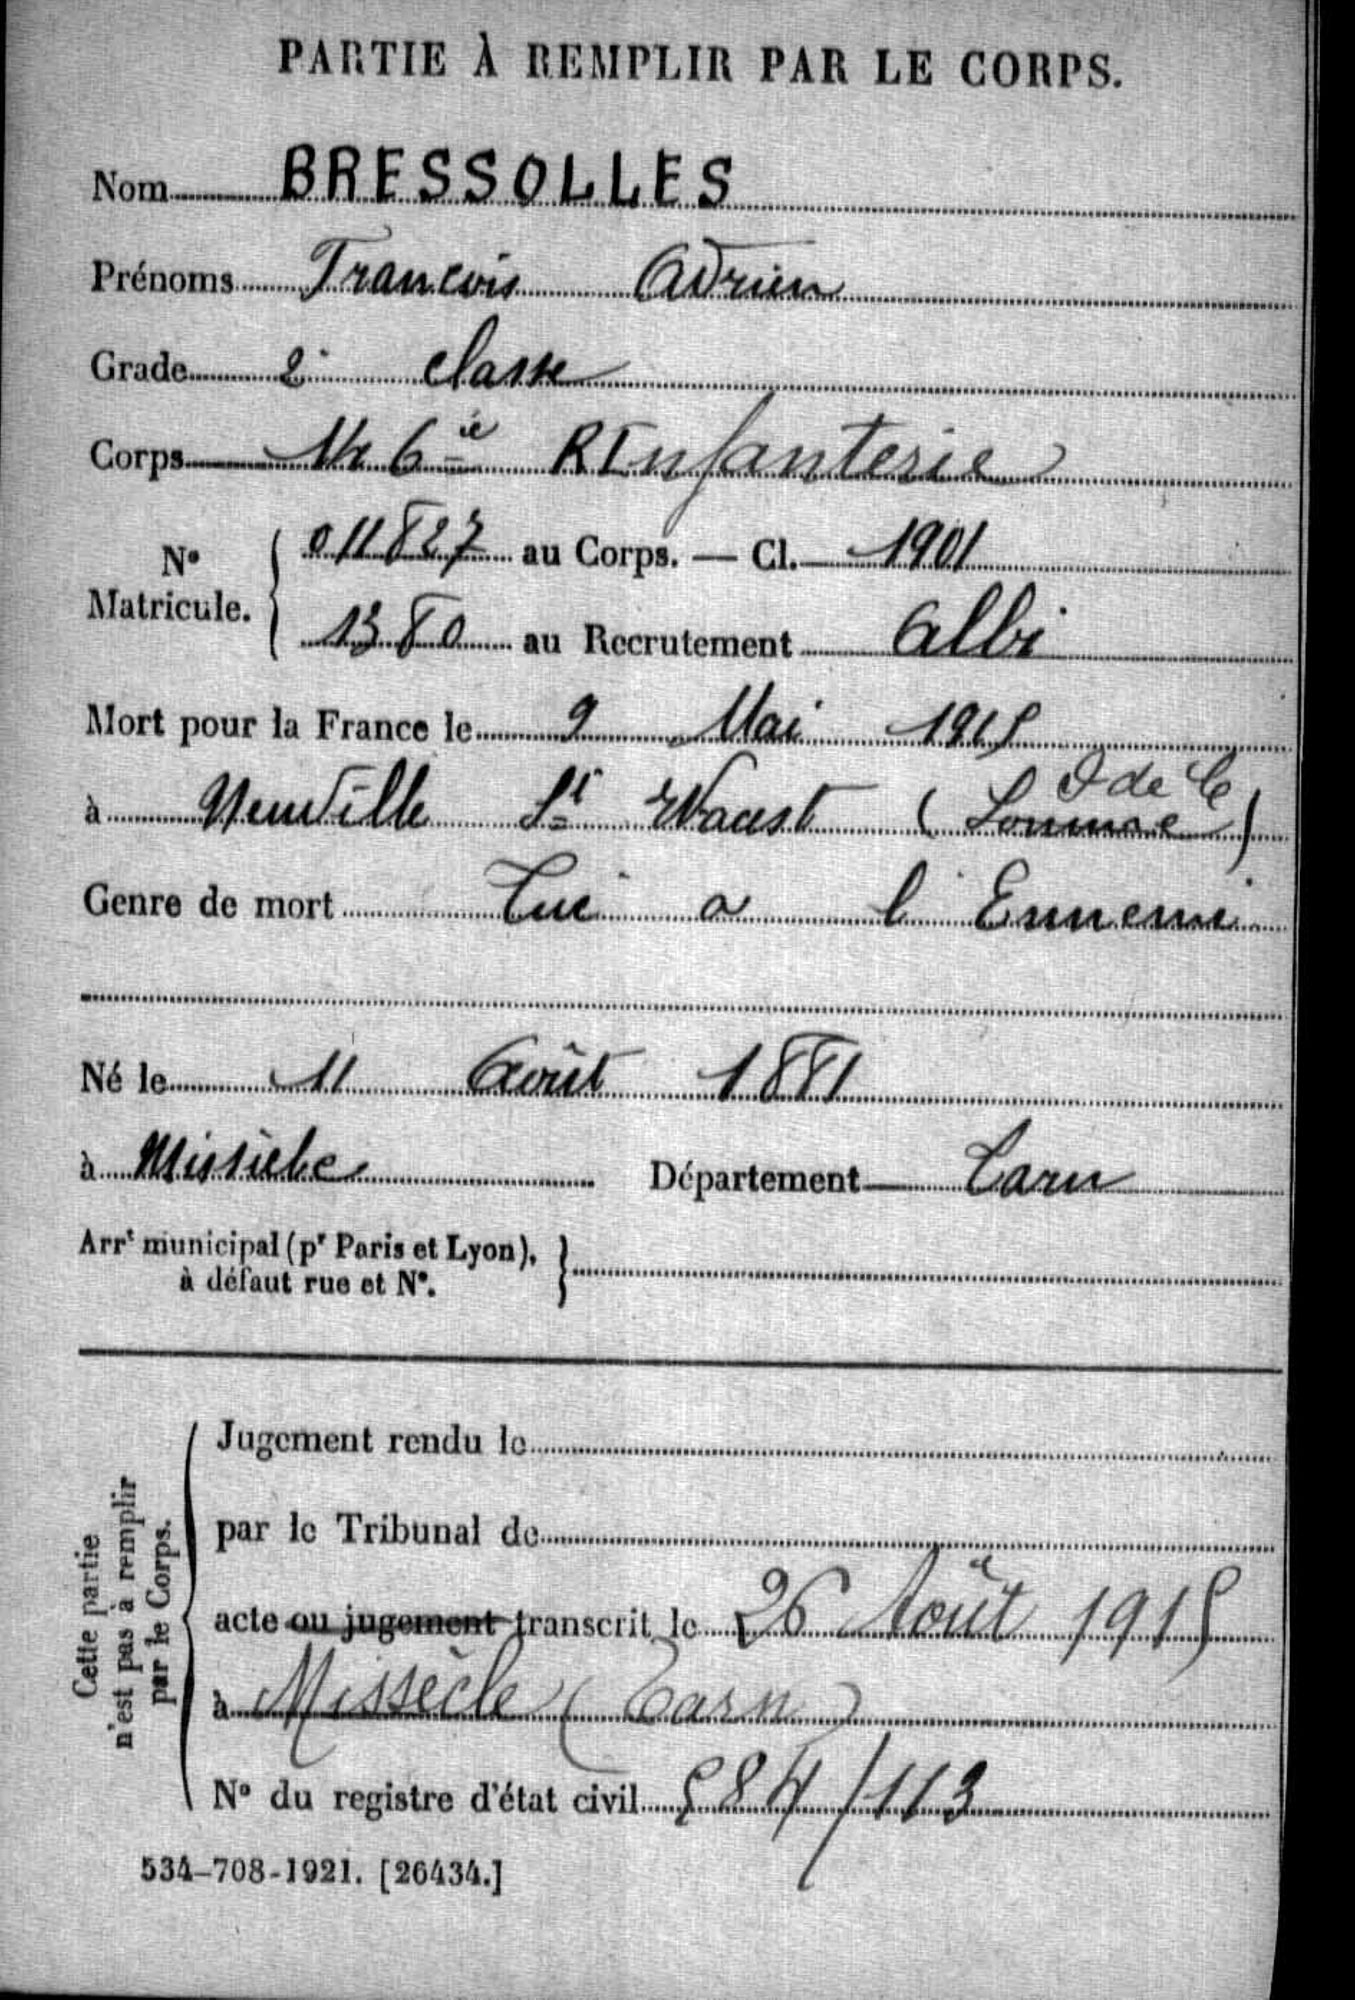 PARTIE À REMPLIR PAR LE CORPS.
Nom BRESSOLLES
Prénoms François Adrien
Grade 2e classe
Corps 6ie R Infanterie
No Matricule. 011827 au Corps. — Cl. 1901
1380 au Recrutement Albi
Mort pour la France le 9 Mai 1915
P de C
à Neuville St Waast (Somme)
Genre de mort Tué a l'Ennemi
Né le 11 Août 1881
à Missièle Département Tarn
Arrt municipal (pr Paris et Lyon),
à défaut rue et No.
Cette partie n'est pas à remplir par le Corps.
Jugement rendu le
par le Tribunal de
acte ou jugement transcrit le 26 Août 1915
à Missècle (Tarn)
No du registre d'état civil 584/113
534-708-1921. [26434.]